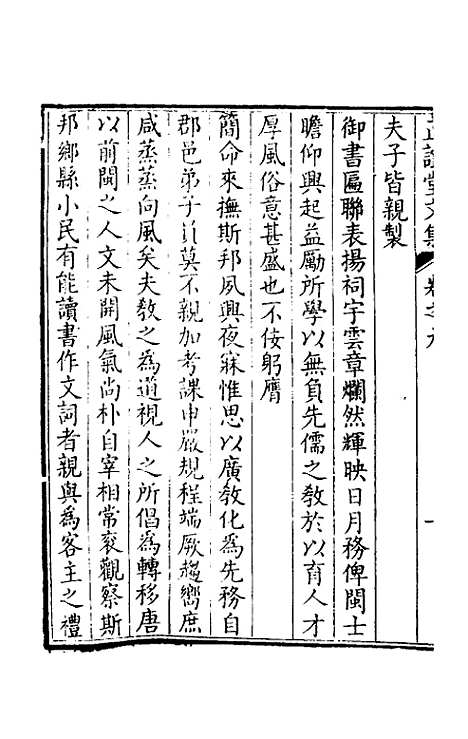 正誼堂文集　卷之九　一
夫子皆親製
御書匾聯表揚祠宇雲章爛然輝映日月務俾閩士
瞻仰興起益勵所學以無負先儒之教於以育人才
厚風俗意甚盛也不佞躬膺
簡命來撫斯邦夙興夜寐惟思以廣教化為先務自
郡邑弟子員莫不親加考課申嚴規程端厥趨嚮庶
咸蒸蒸向風矣夫教之為道視人之所倡為轉移唐
以前閩之人文未開風氣尚朴自宰相常袞觀察斯
邦鄉縣小民有能讀書作文詞者親與為客主之禮